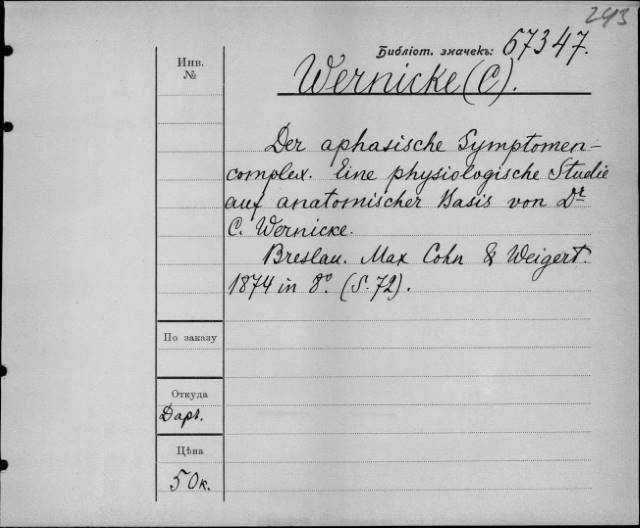 243
Библіот. значекъ: 67347.
Инв.
№
Wernicke (C).
Der aphasische Symptomen-
complex. Eine physiologische Studie
auf anatomischer Basis von Dr
C. Wernicke.
Breslau. Max Cohn & Weigert.
1874 in 8º. (S. 72).
По заказу
Откуда
Даръ.
Цѣна
50к.